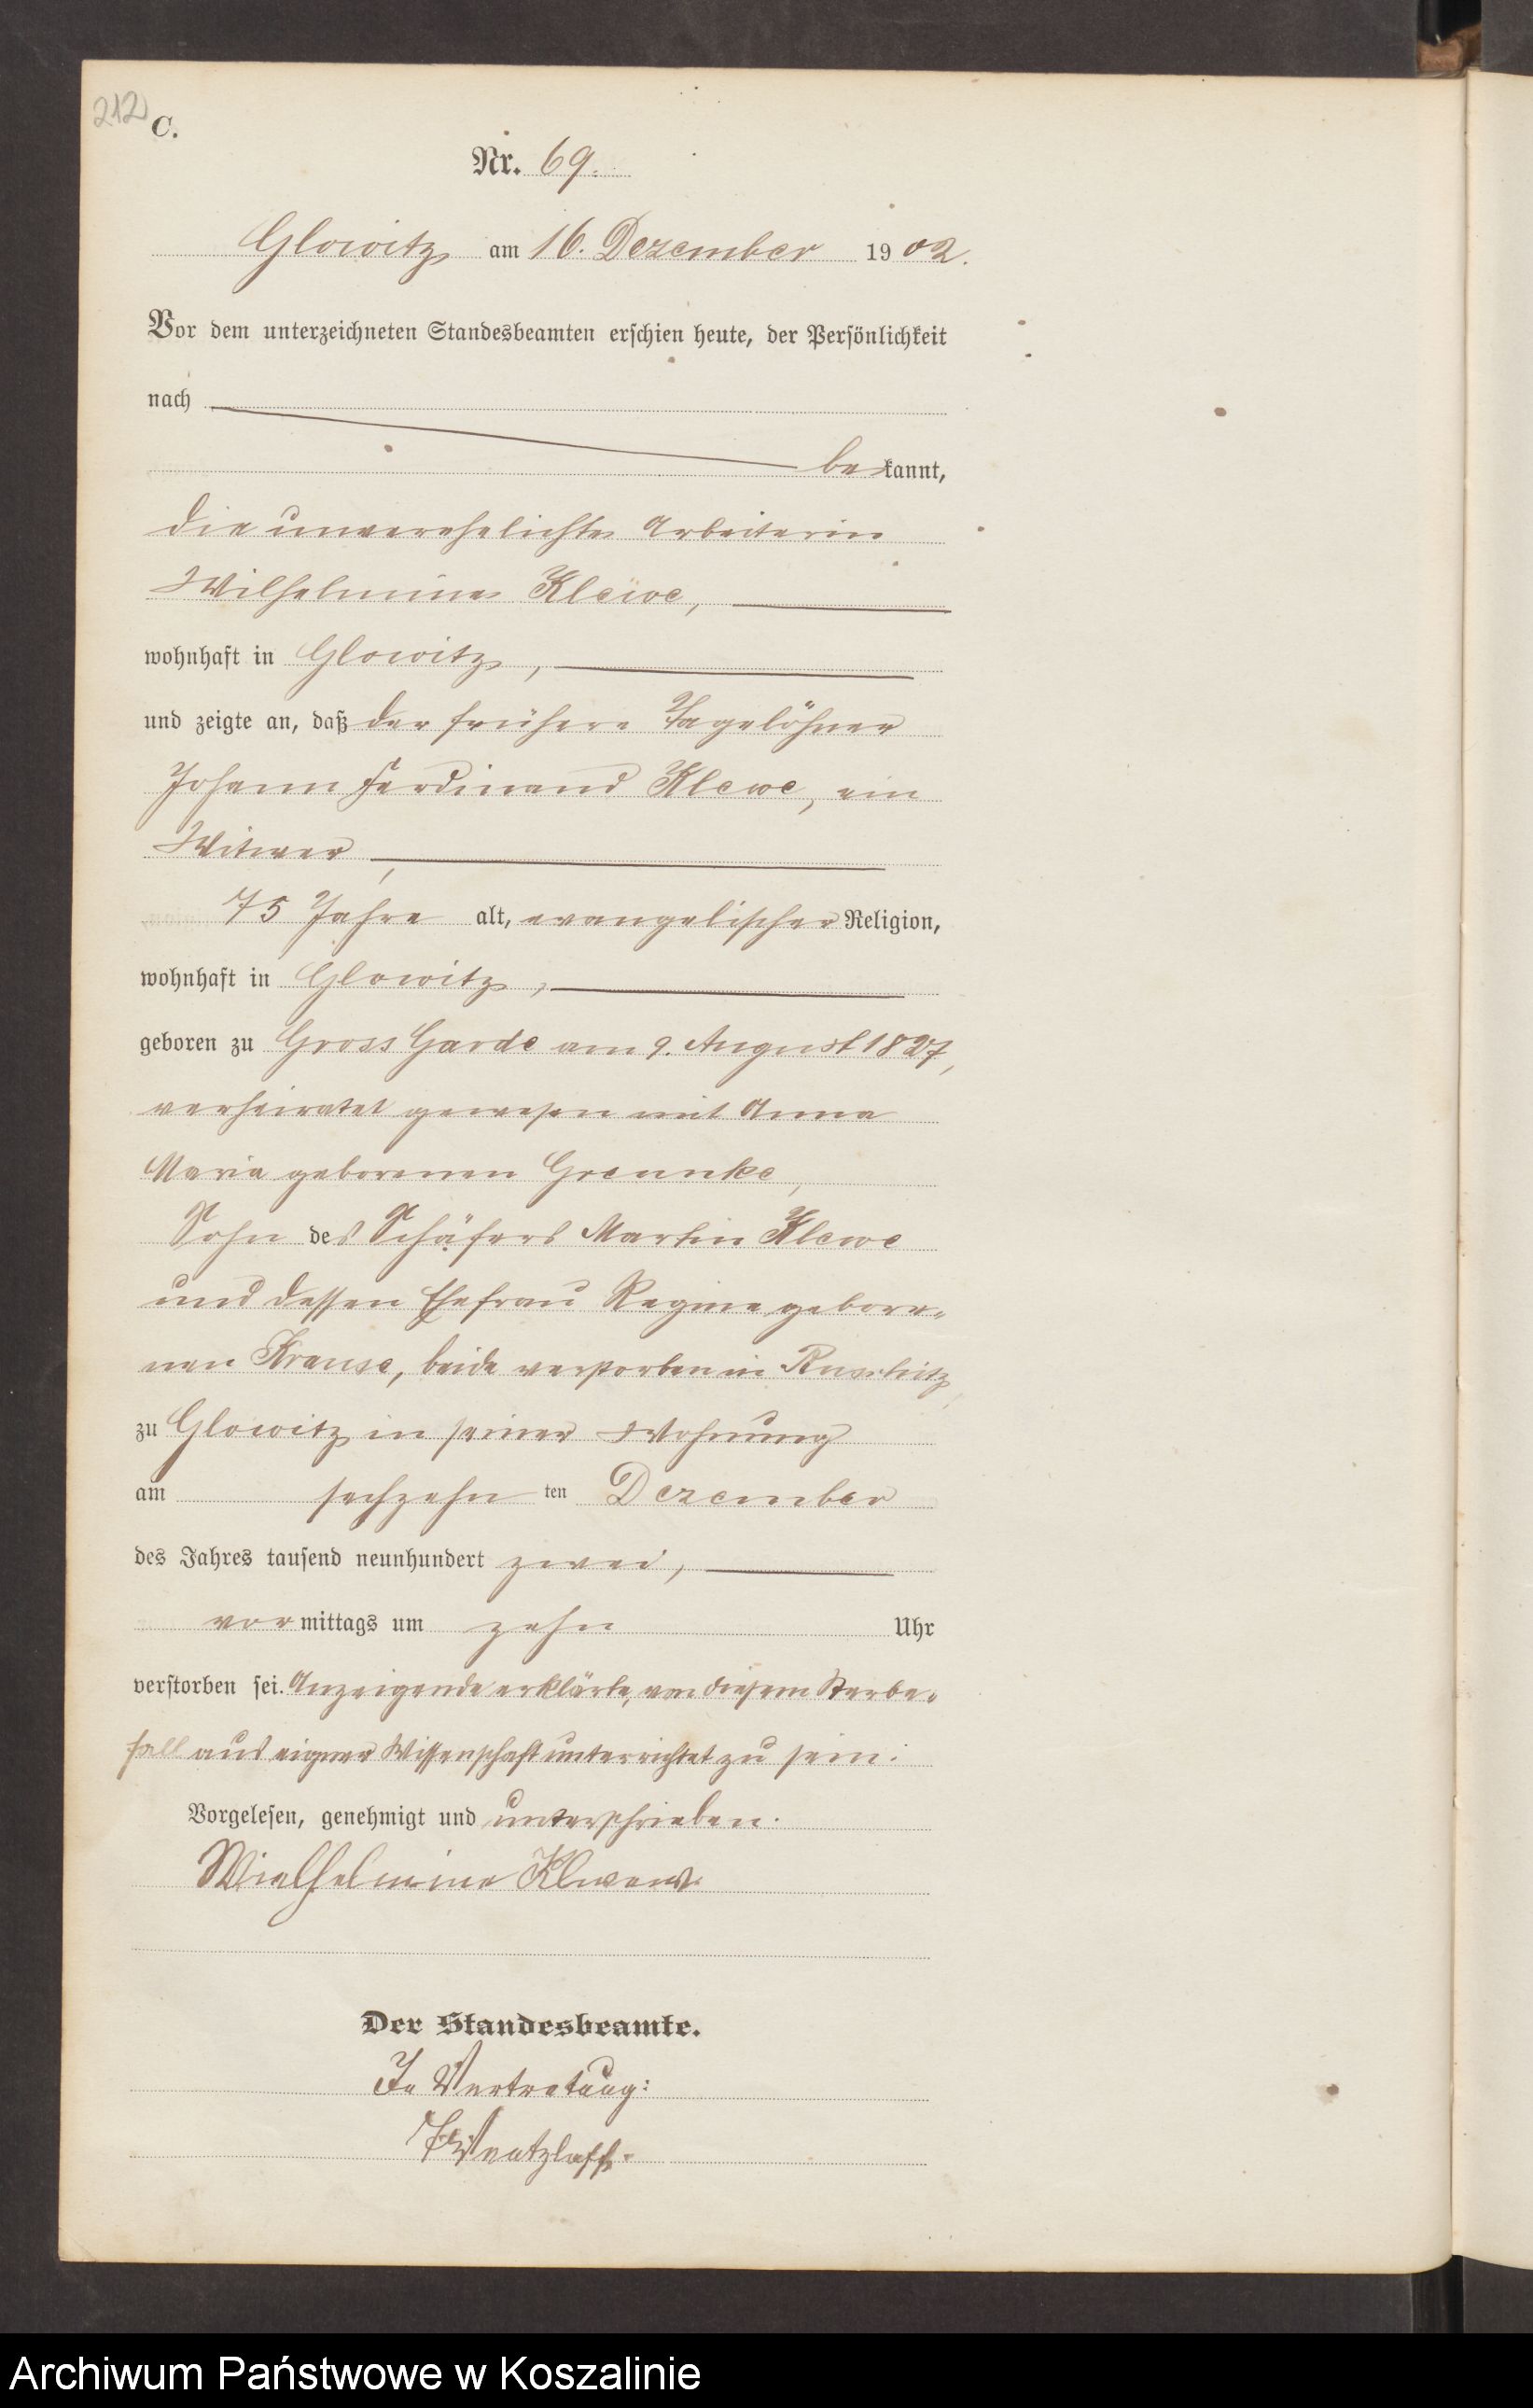 212
C.
Nr. 69.
Glowitz am 16. Dezember 1902.
Vor dem unterzeichneten Standesbeamten erschien heute, der Persönlichkeit
nach
bekannt,
die unverehelichte Arbeiterin
Wilhelmine Klewe,
wohnhaft in Glowitz,
und zeigte an, daß der frühere Tagelöhner
Johann Ferdinand Klewe, ein
Witwer,
75 Jahre alt, evangelischer Religion,
wohnhaft in Glowitz,
geboren zu Gross Garde am 9. August 1827,
verheiratet gewesen mit Anna
Maria geborenen
Sohn des Schäfers Martin Klewe
und dessen Ehefrau Regine gebore-
nen Krause, beide verstorben in
zu Glowitz in seiner Wohnung
am sechzehn ten Dezember
des Jahres tausend neunhundert zwei,
vor mittags um zehn Uhr
verstorben sei. Anzeigende erklärte, von diesem Sterbe-
fall aus eigner Wissenschaft unterrichtet zu sein.
Vorgelesen, genehmigt und unterschrieben.
Der Standesbeamte.
In Vertretung:
Archiwum Państwowe w Koszalinie